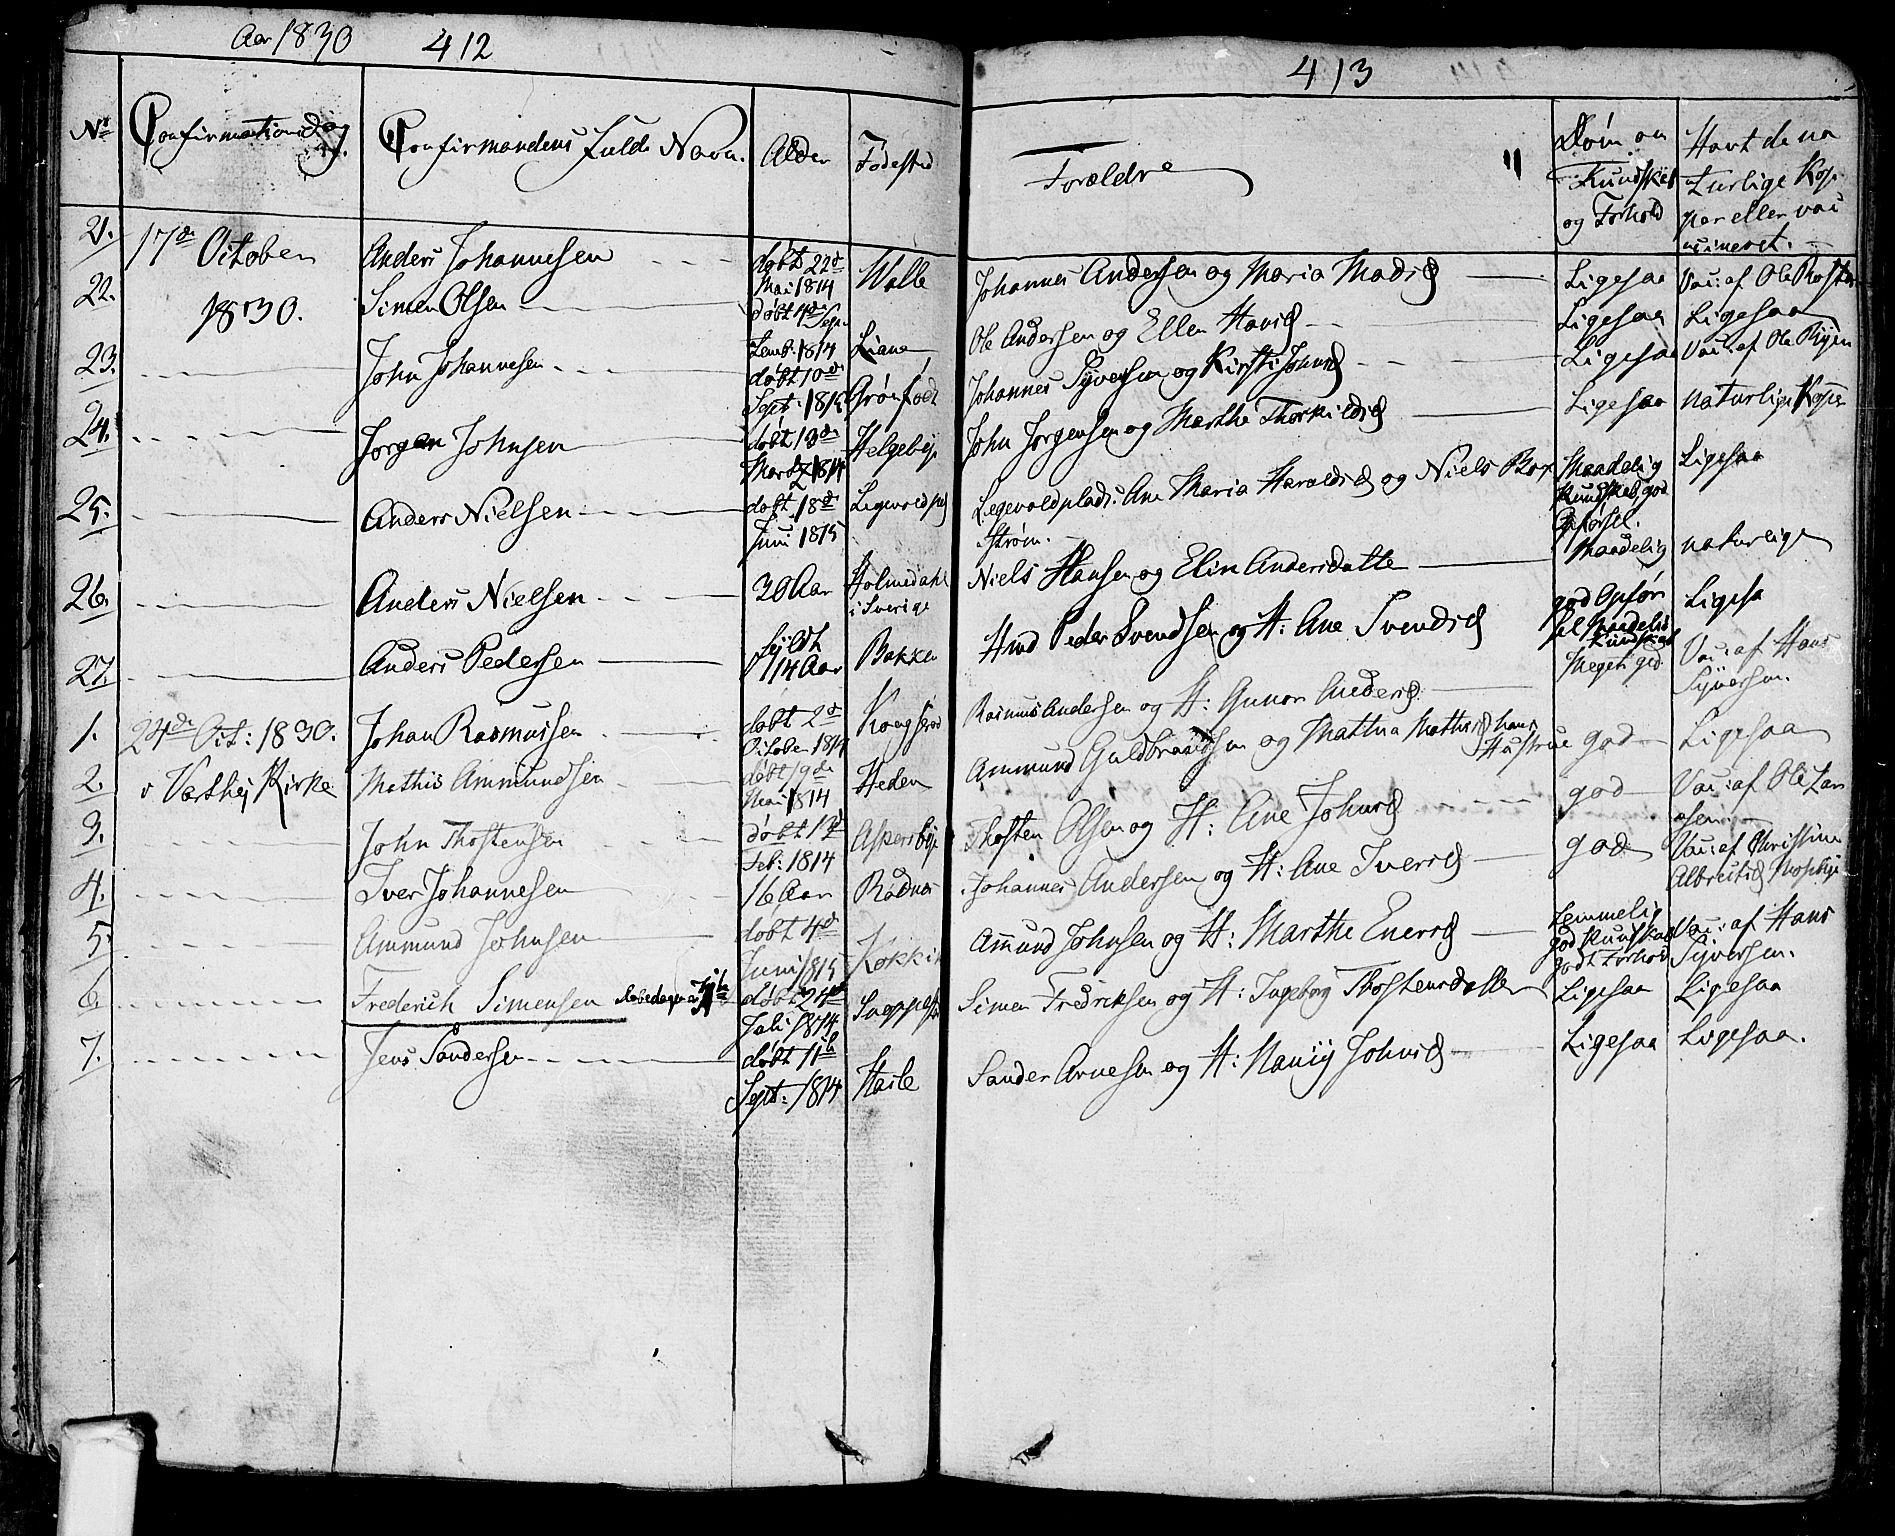 Aar 1830 412
No Confirmationsdag Confirmandens fulde Navn. Alder Fødested
21. 17de October Anders Johannesen døbt 22d Mai 1814 Walle
22. 1830. Simen Olsen døbt 4de Septembr: 1814 Liane
23. John Johannesen døbt 10de Sept: 1815 Grønfødt
24. Jørgen Johnsen døbt 13de Marti 1814 Helgebye
25. Anders Nielsen døbt 18de Juni 1815 Ligevoldpl
26. Anders Nielsen 30 Aar Holmedahl i Sverige
27. Anders Pedersen fyldt 14 Aar Bakken
1. 24de Oct: 1830. Johan Rasmussen døbt 2d October 1814
2. i Varthej Kirke Mathis Ammundsen døbt 19de Mai 1814 Heden
3. John Thostensen døbt 13d Feb: 1814 Aspersbye
4. Iver Johannesen 16 Aar Rødnæs
5. Ammund Johnsen døbt 4de Juni 1815 Kokkin
6. Frederich Simensen døbt 24de Juli 1814
7. Jens Sandersen døbt 11th Sept: 1814 Hasle
413
Forældre Dom om Kundskab og Forhold Havt de naturlige Kopper eller vaccineret.
Johannes Andersen og Maria Madsd Ligesaa Vac: af Ole
Ole Andersen og Ellen Hansd Ligesaa Ligesaa
Johannes Syversen og Kirsti Johnsd Ligesaa Vac: af Ole Ryen
John Jørgensen og Marthe Thorkildsd Ligesaa naturlige Kopper
Legevoldplads: Ane Maria Haraldsd og Niels Strøm. Maadelig Kundskab, god Opførsel. Ligesaa
Niels Hansen og Elin Andersdatte Maadelig god Opførsel naturlige
Hmd Peder Svendsen og H: Ane Svendsd Maadelig Kundskab Ligesa
Rasmus Andersen og H: Gunor Andersd Meget god Vac: af Hans Syversen.
Ammund Guldbrandsen og Mathea Mathisd hans Hustrue god Ligesaa
Thosten Olsen og H: Ane Johnsd god Vac: af Ole Larsen
Johannes Andersen og H: Ane Iversd god Vac: af Christine Albretsd
Amund Johnsen og H: Marthe Enersd temmelig god Kundskab godt Forhold Vac: af Hans Syversen.
Simen Fredriksen og H: Ingeborg Thostensdatter Ligesaa Ligesaa
Sander Arnesen og H: Johnsd Ligesaa Ligesaa.